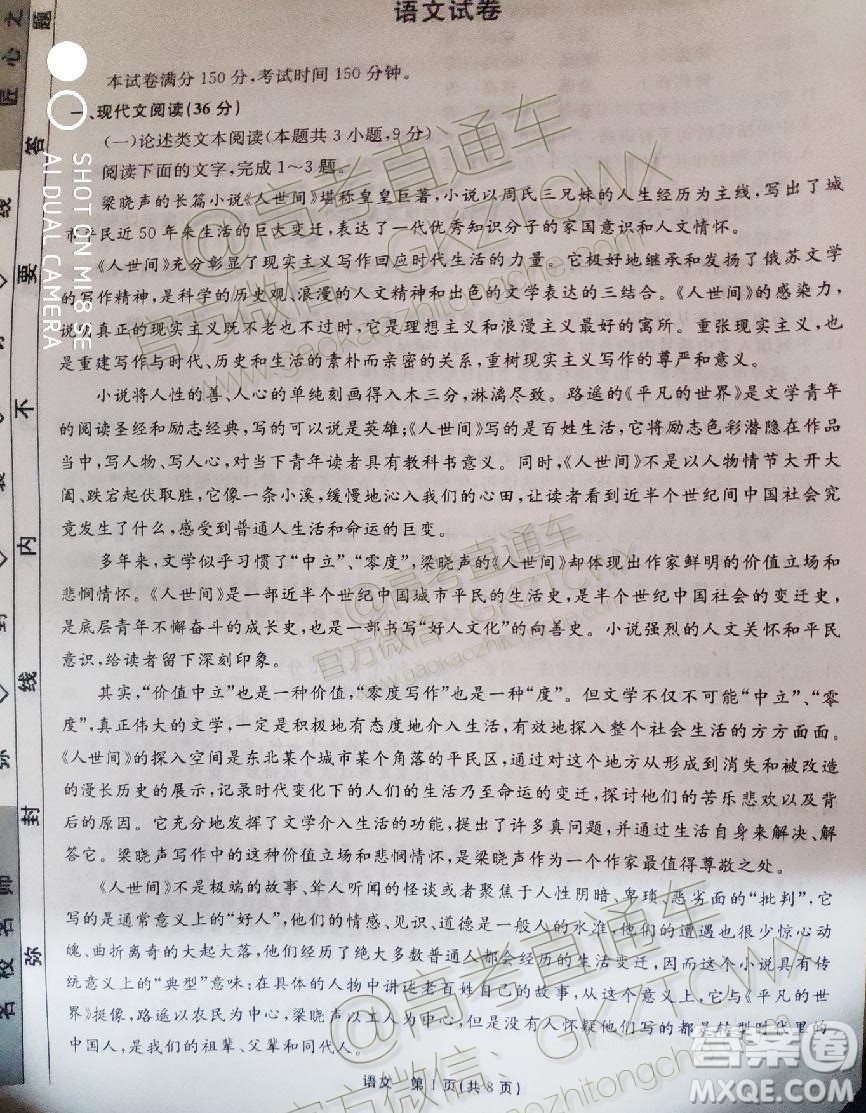 语文试卷
本试卷满分150分,考试时间150分钟。
一、现代文阅读(36分)
(一)论述类文本阅读(本题共3小题,9分)
阅读下面的文字,完成1～3题。
梁晓声的长篇小说《人世间》堪称皇皇巨著,小说以周氏三兄妹的人生经历为主线,写出了城
市平民近50年来生活的巨大变迁,表达了一代优秀知识分子的家国意识和人文情怀。
《人世间》充分彰显了现实主义写作回应时代生活的力量。它极好地继承和发扬了俄苏文学
的写作精神,是科学的历史观、浪漫的人文精神和出色的文学表达的三结合。《人世间》的感染力,
说明真正的现实主义既不老也不过时,它是理想主义和浪漫主义最好的寓所。重张现实主义,也
是重建写作与时代、历史和生活的素朴而亲密的关系,重树现实主义写作的尊严和意义。
小说将人性的善、人心的单纯刻画得入木三分,淋漓尽致。路遥的《平凡的世界》是文学青年
的阅读圣经和励志经典,写的可以说是英雄;《人世间》写的是百姓生活,它将励志色彩潜隐在作品
当中,写人物、写人心,对当下青年读者具有教科书意义。同时,《人世间》不是以人物情节大开大
阖、跌宕起伏取胜,它像一条小溪,缓慢地沁入我们的心田,让读者看到近半个世纪间中国社会究
竟发生了什么,感受到普通人生活和命运的巨变。
多年来,文学似乎习惯了“中立”、“零度”,梁晓声的《人世间》却体现出作家鲜明的价值立场和
悲悯情怀。《人世间》是一部近半个世纪中国城市平民的生活史,是半个世纪中国社会的变迁史,
是底层青年不懈奋斗的成长史,也是一部书写“好人文化”的向善史。小说强烈的人文关怀和平民
意识,给读者留下深刻印象。
其实,“价值中立”也是一种价值,“零度写作”也是一种“度”。但文学不仅不可能“中立”、“零
度”,真正伟大的文学,一定是积极地有态度地介入生活,有效地探入整个社会生活的方方面面。
《人世间》的探入空间是东北某个城市某个角落的平民区,通过对这个地方从形成到消失和被改造
的漫长历史的展示,记录时代变化下的人们的生活乃至命运的变迁,探讨他们的苦乐悲欢以及背
后的原因。它充分地发挥了文学介入生活的功能,提出了许多真问题,并通过生活自身来解决、解
答它。梁晓声写作中的这种价值立场和悲悯情怀,是梁晓声作为一个作家最值得尊敬之处。
《人世间》不是极端的故事、耸人听闻的怪谈或者聚焦于人性阴暗、卑琐、恶劣面的“批判”,它
写的是通常意义上的“好人”,他们的情感、见识、道德是一般人的水准,他们的遭遇也很少惊心动
魄、曲折离奇的大起大落,他们经历了绝大多数普通人都会经历的生活变迁,因而这个小说具有传
统意义上的“典型”意味:在具体的人物中讲述老百姓自己的故事,从这个意义上,它与《平凡的世
界》挺像,路遥以农民为中心,梁晓声以工人为中心,但是没有人怀疑他们写的都是转型时代里的
中国人,是我们的祖辈、父辈和同代人。
语文 第1页(共8页)
题
匠心之
答
线
要
不
内
线
封
弥
名校名师
SHOT ON MI 8 SE
AI DUAL CAMERA
@高考直通车
官方微信:GKZTCWX
www.gaokaozhitongche.com
@高考直通车
官方微信:GKZTCWX
www.gaokaozhitongche.com
@高考直通车
官方微信:GKZTCWX
www.gaokaozhitongche.com
答案圈
MXQE.COM